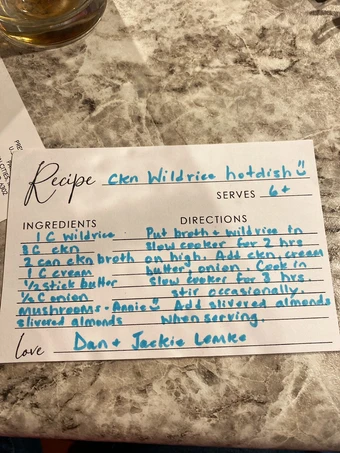 Recipe ckn Wildrice hotdish
SERVES 6+
INGREDIENTS
1 C Wildrice
3 C ckn
1 can ckn broth
1 C cream
1/2 stick butter
mushrooms - Annie
slivered almonds
DIRECTIONS
Put broth + wildrice in
slow cooker for 2 hrs
on high. Add ckn, cream
butter, onion. Cook in
slow cooker for 3 hrs.
stir occasionally.
Add slivered almonds
when serving.
love Dan + Jackie Lemke